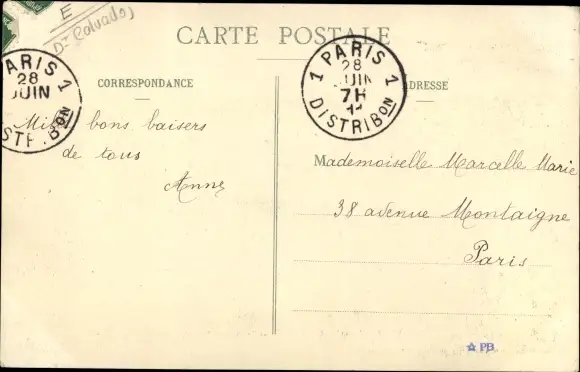 E
Dt Calvados
CARTE POSTALE
CORRESPONDANCE
ADRESSE
PARIS 1
28
JUIN
DISTRIBON
1 PARIS 1
28
JUIN
7H
11
DISTRIBON
Mille bons baisers
de tous
Anne
Mademoiselle Marcelle Marie
38 avenue Montaigne
Paris
PB